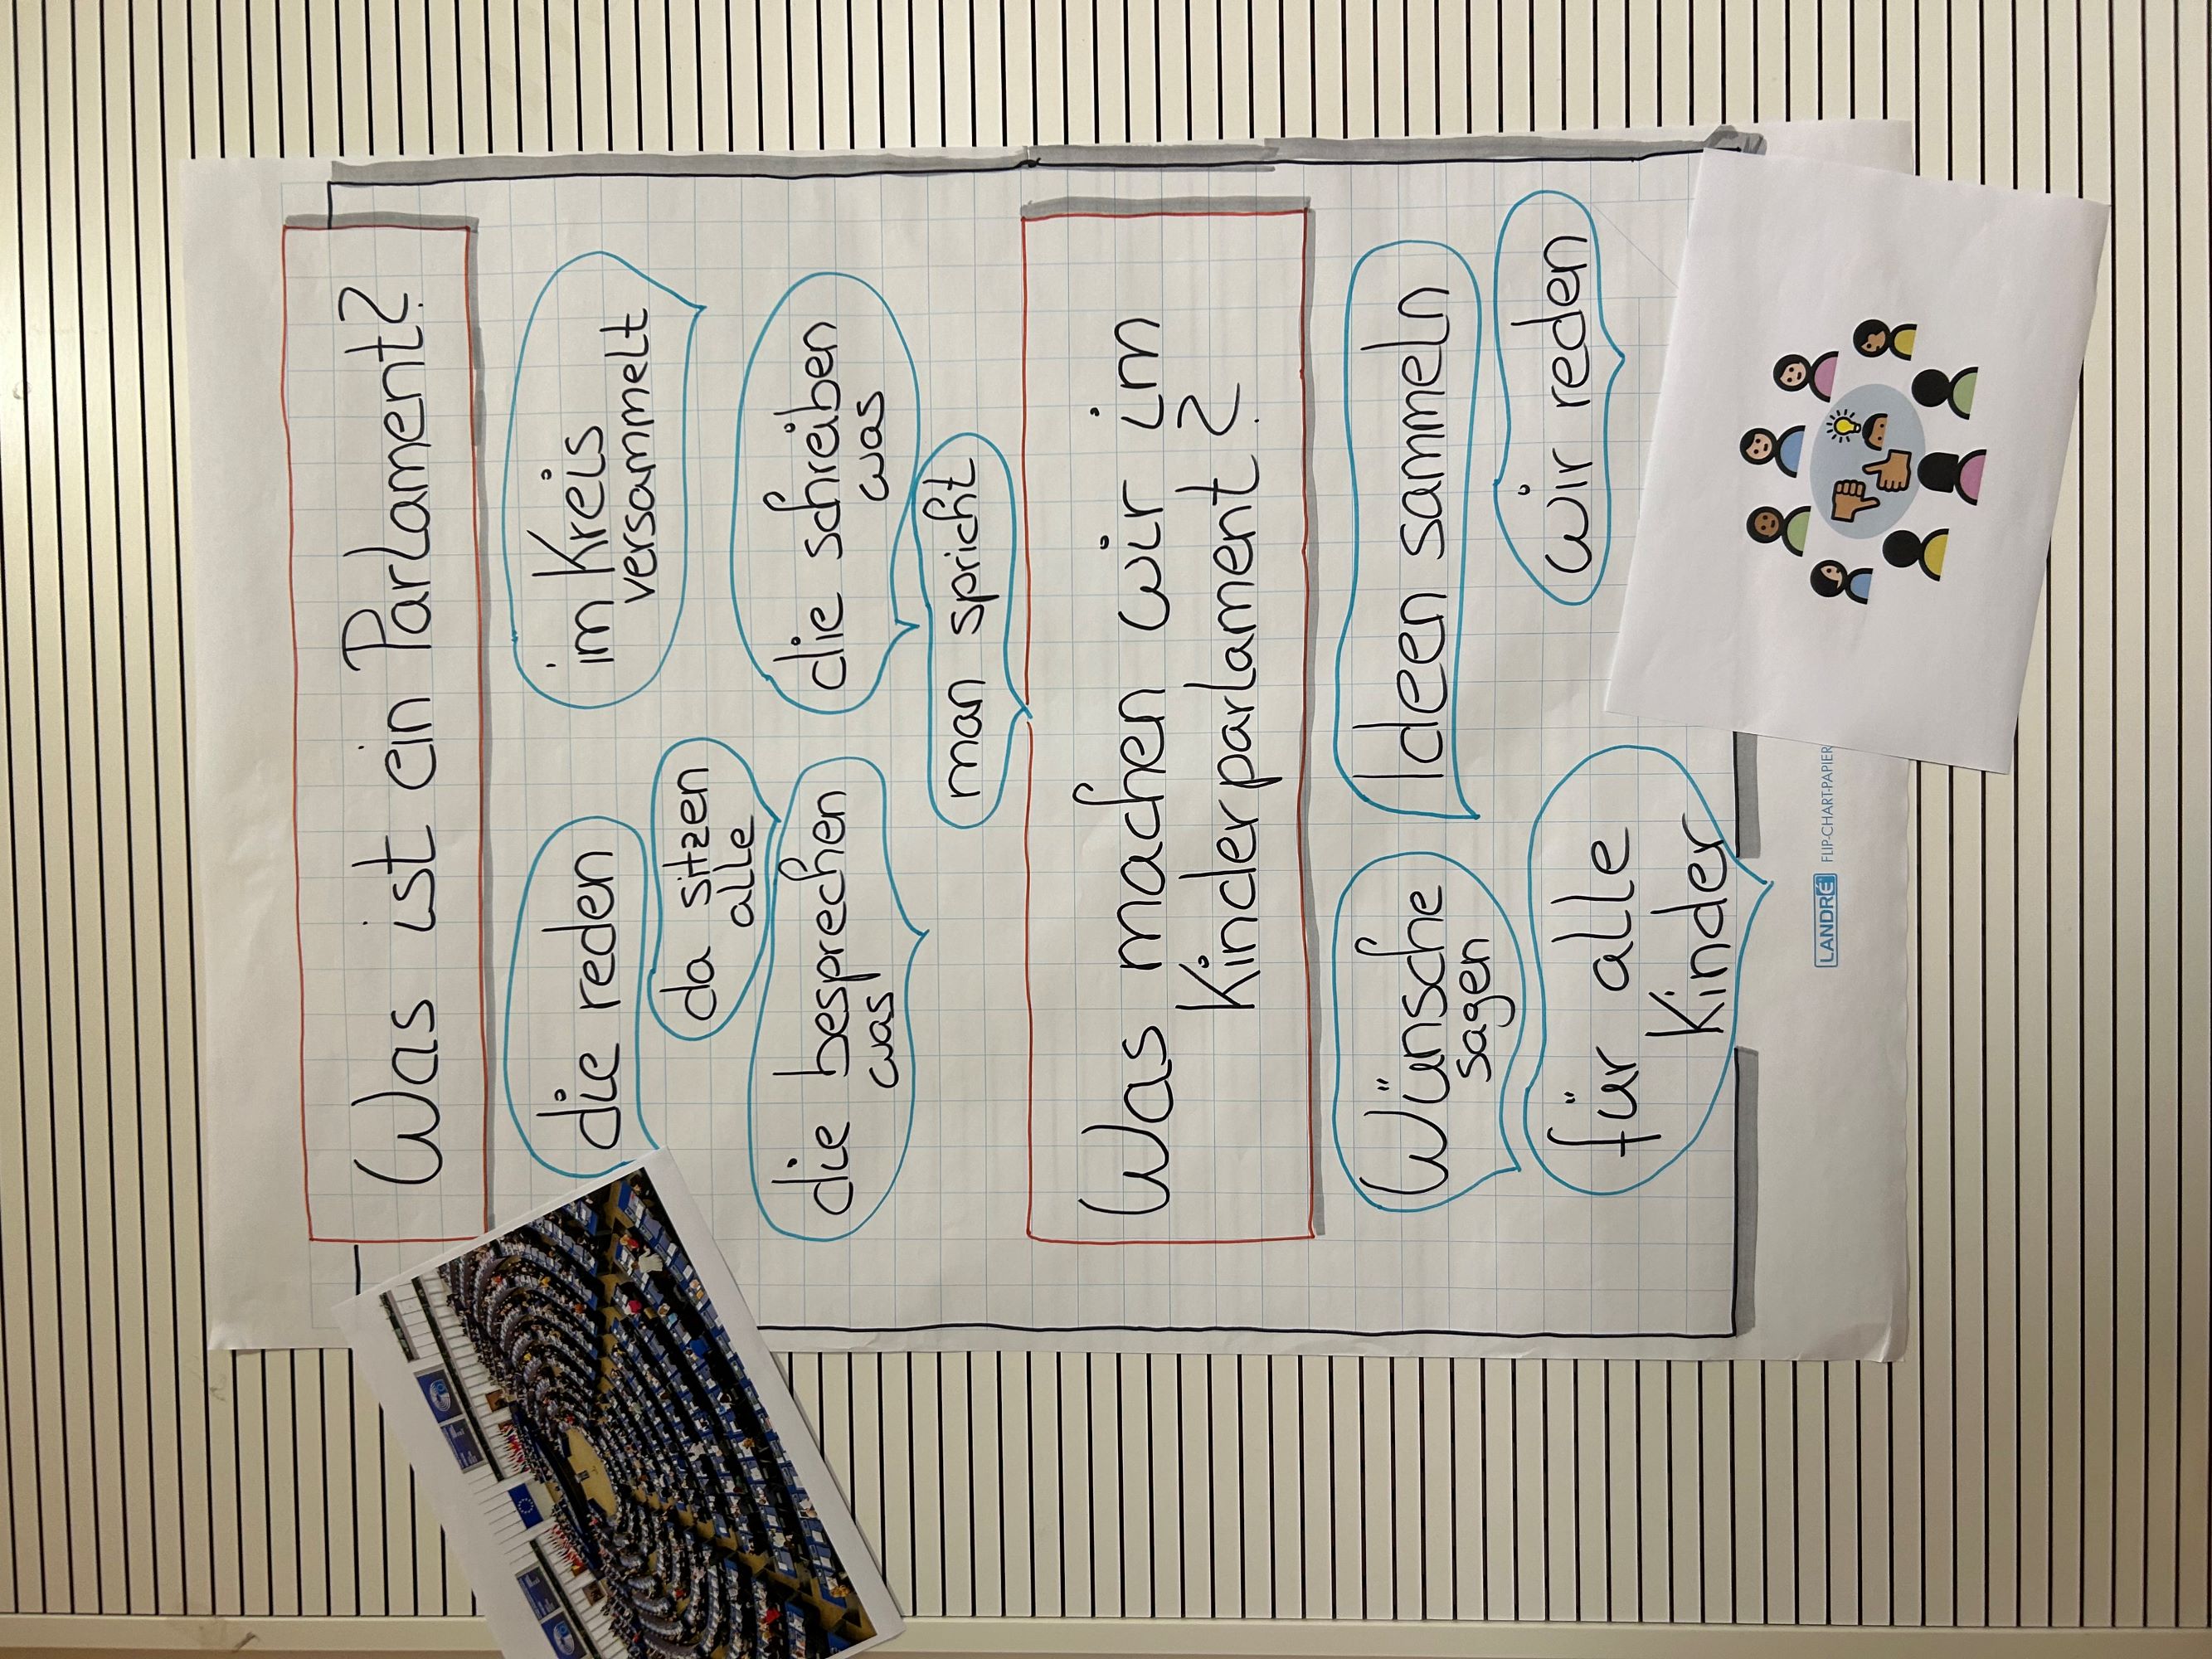 Was ist ein Parlament?
die reden
im Kreis
versammelt
da sitzen
alle
die schreiben
was
die besprechen
was
man spricht
Was machen wir im
Kinderparlament?
Wünsche
sagen
Ideen sammeln
für alle
Kinder
wir reden
LANDRÉ FLIP-CHART-PAPIER